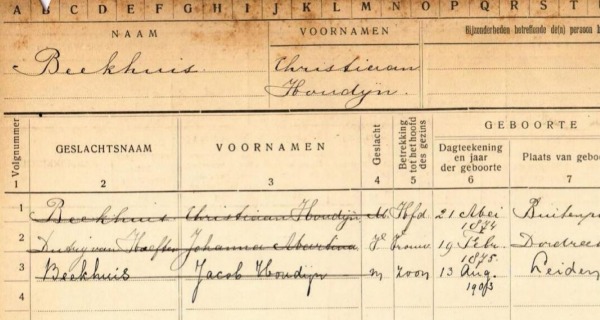 A B C D E F G H I J K L M N O P Q R S T
NAAM
VOORNAMEN
Bijzonderheden betreffende de(n) persoon
Beekhuis.
Christiaan
Houdijn.
Volgnummer
GESLACHTSNAAM
VOORNAMEN
Geslacht
Betrekking tot het hoofd des gezins
GEBOORTE
Dagteekening en jaar der geboorte
Plaats van geboo
1 2 3 4 5 6 7
1 Beekhuis. Christiaan Houdijn M. Hfd. 21 Mei 1874
2 Johanna Vrouw 19 Febr. 1875. Dordrec
3 Beekhuis Jacob Houdijn m zoon 13 Aug. 1903 Leiden
4